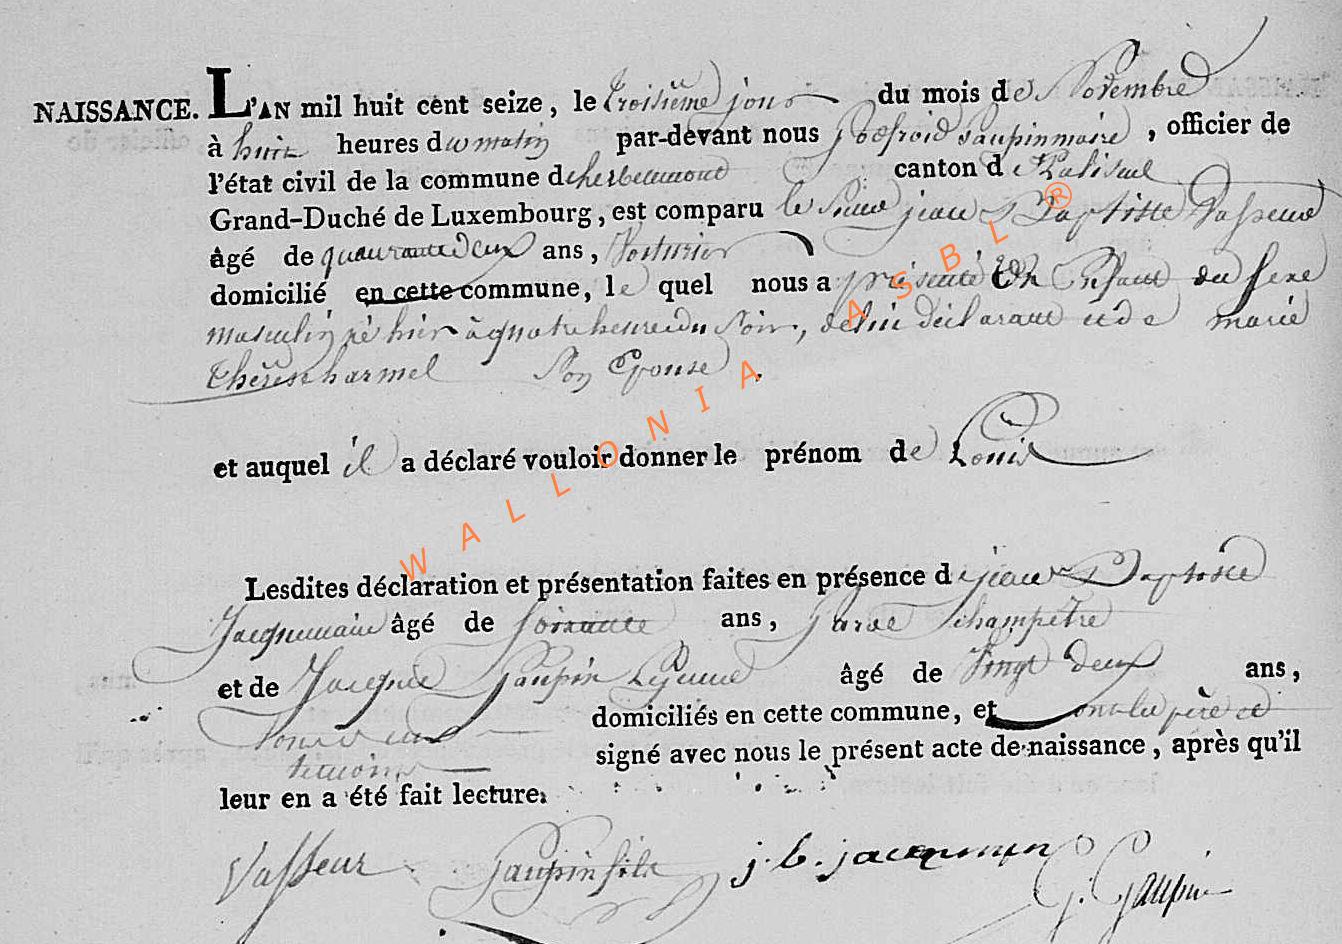 NAISSANCE. L'AN mil huit cent seize, le troisième jour du mois de Novembre
à huit heures du matin par-devant nous godefroid Gaupin maire, officier de
l'état civil de la commune d'herbeumont canton de Paliseul
Grand-Duché de Luxembourg, est comparu le Sieur jean Baptiste Vasseur
âgé de quaurante deux ans, Voiturier
domicilié en cette commune, le quel nous a présenté Un Enfant du sexe
masculin né hier à quatre heure du Soir, de lui déclarant et de marie
thérèse harmel Son Epouse.
et auquel il a déclaré vouloir donner le prénom de Louis
Lesdites déclaration et présentation faites en présence de jean Baptiste
Jacquemain âgé de soixante ans, garde champêtre
et de Jacque Gaupin Le jeune âgé de Vingt deux ans,
domiciliés en cette commune, et ont les père et
témoins signé avec nous le présent acte de naissance, après qu'il
leur en a été fait lecture.
Vasseur Gaupin fils j. b. jacqmin G. Gaupin
WALLONIA ASBL ®